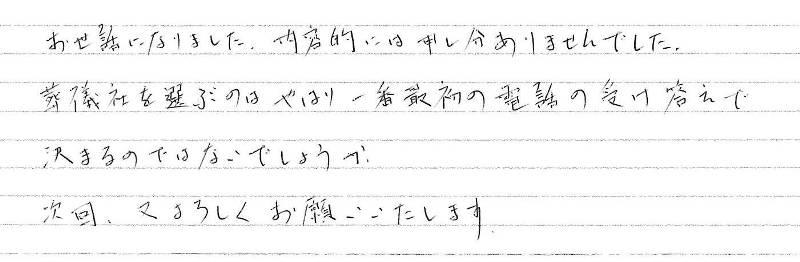 お世話になりました。内容的には申し分ありませんでした。
葬儀社を選ぶのはやはり一番最初の電話の受け答えで
決まるのではないでしょうか。
次回、又よろしくお願いいたします。